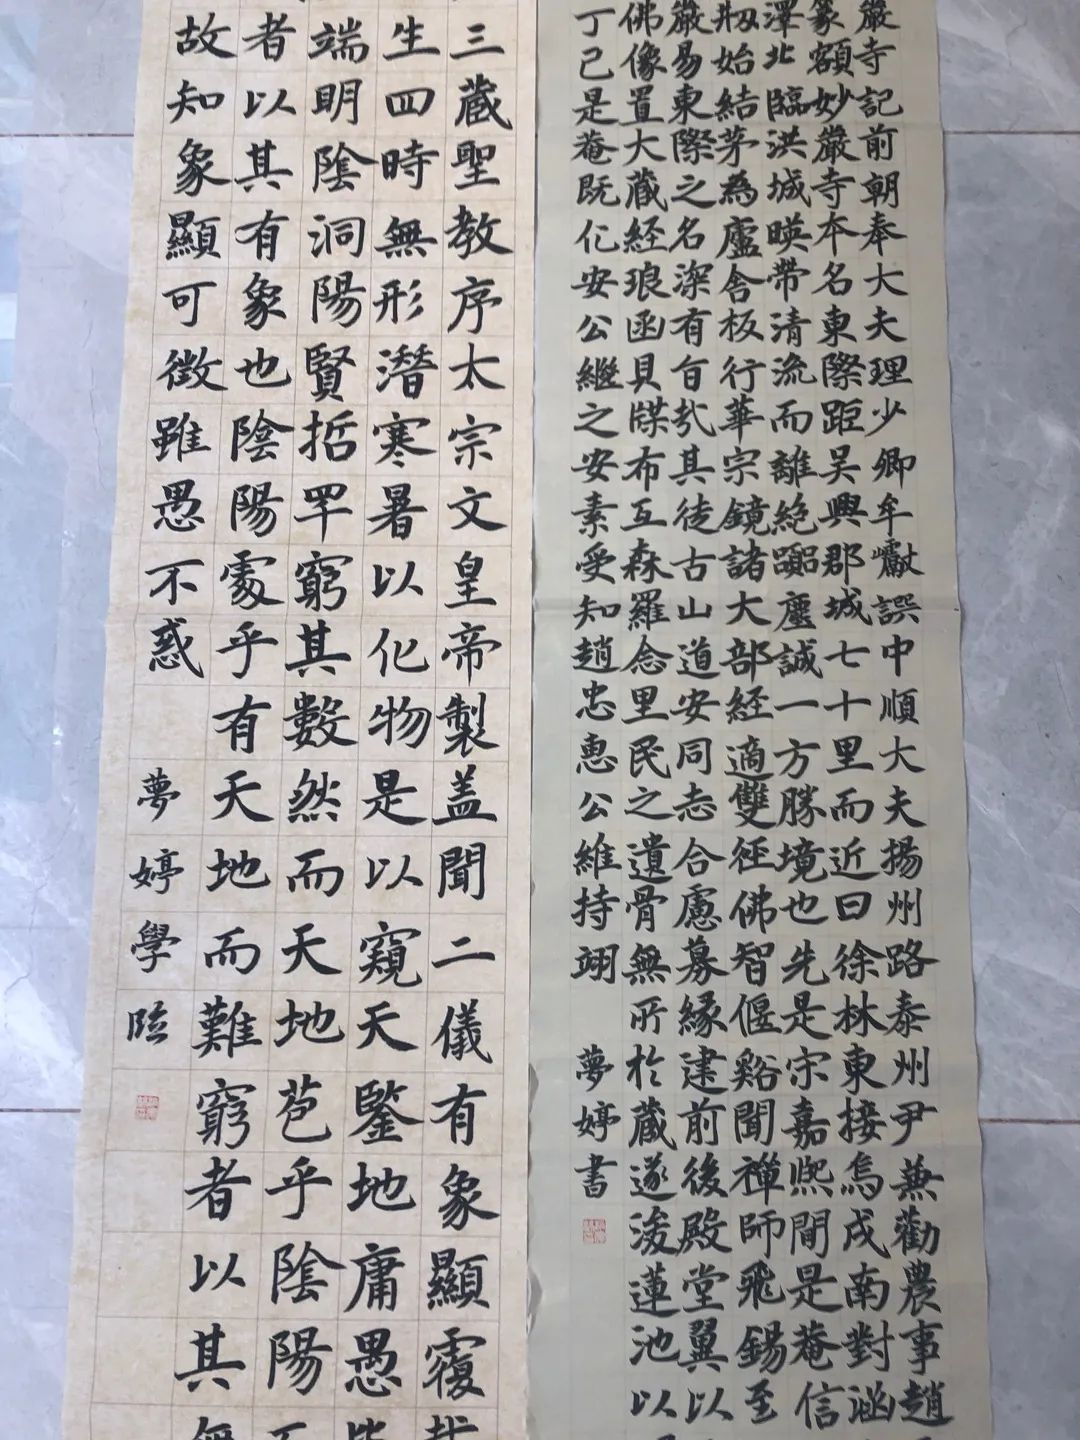 嚴寺記前朝奉大夫理少卿牟巘譔中順大夫揚州路泰州尹兼勸農事趙
篆額妙嚴寺本名東際距吳興郡城七十里而近曰徐林東接烏戍南對涵
澤北臨洪城暎帶清流而離絶嚻塵誠一方勝境也先是宋嘉熙間是菴信
剏始結茅為廬舍板行華宗鏡諸大部経適雙徑佛智偃谿聞禪師飛錫至
嚴易東際之名深有旨㢤其徒古山道安同志合慮募緣建前後殿堂翼以
佛像置大藏経琅函貝牒布互森羅念里民之遺骨無所於藏遂浚蓮池以
丁已是菴既化安公繼之安素受知趙忠惠公維持翊
夢婷書
三藏聖教序太宗文皇帝製盖聞二儀有象顯覆
生四時無形潛寒暑以化物是以窺天鑒地庸愚皆
端明陰洞陽賢哲罕窮其數然而天地苞乎陰陽
者以其有象也陰陽處乎有天地而難窮者以其無
故知象顯可徵雖愚不惑
夢婷學臨